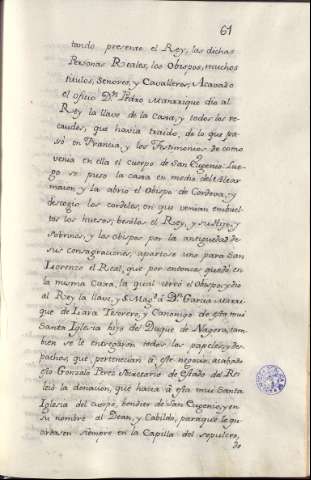 61
tando presente el Rey, las dichas
Personas Reales, los Obispos, muchos
titulos, Señores, y Cavalleros; Acavado
el oficio Dn. Pedro Manrrique dio al
Rey la llave de la caxa, y todos los re-
caudos, que havia traido, de lo que pa-
só en Francia, y los Testimonios de como
venia en ella el cuerpo de San Eugenio: Lue-
go se puso la caxa en medio del Altar
maior, y la abrio el Obispo de Cordova, y
descogio los cordeles, en que venian embuel-
tos los huesos; besólos el Rey, y su Hijo, y
Sobrinos, y los obispos por la antiguedad de
sus consagraciones; apartose uno para San
Lorenzo el Real, que por entonces quedó en
la misma Caxa, la qual cerró el Obispo, y dio
al Rey la llave, y S. Magd. á Dn. Garcia Manrri-
que de Lara Tesorero, y Canonigo de esta mui
Santa Iglesia hijo del Duque de Nagera, tam-
bien se le entregaron todos los papeles, y des-
pachos, que pertenecian á este negocio; acabado
esto Gonzalo Perez Secretario de Estado del Rei
leió la donacion, que hacia á esta mui Santa
Iglesia del cuerpo, bendito de San Eugenio, y en
su nombre al Dean, y Cabildo, para que le gu-
ardasen siempre en la Capilla del sepulcro,
do